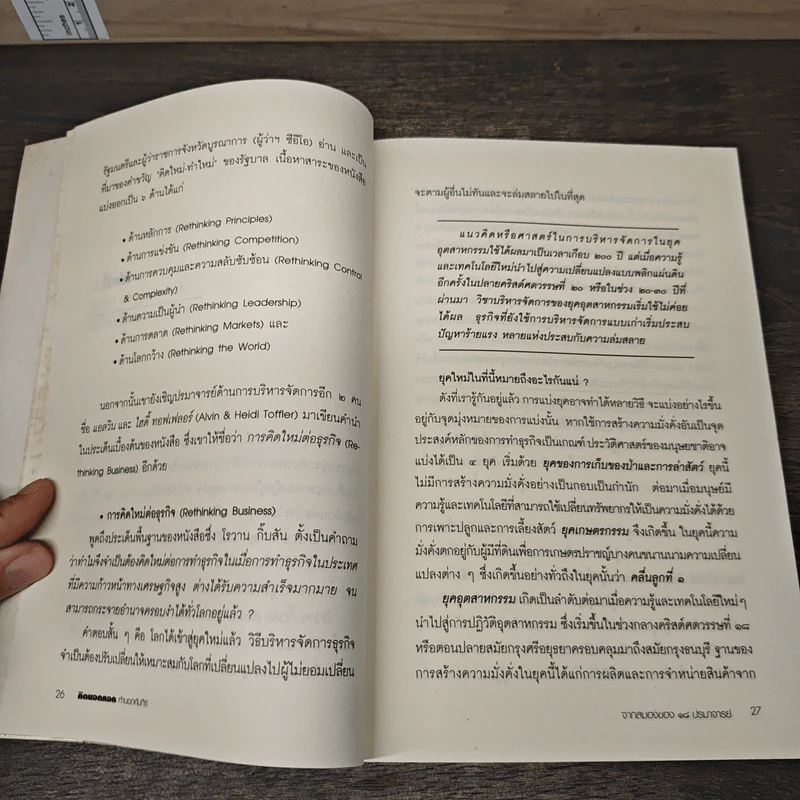 inches
รัฐมนตรีและผู้ว่าราชการจังหวัดบูรณาการ (ผู้ว่าฯ ซีอีโอ) อ่าน และเป็น
ที่มาของคำขวัญ "คิดใหม่-ทำใหม่" ของรัฐบาล เนื้อหาสาระของหนังสือ
แบ่งออกเป็น ๖ ด้านได้แก่
• ด้านหลักการ (Rethinking Principles)
• ด้านการแข่งขัน (Rethinking Competition)
• ด้านการควบคุมและความสลับซับซ้อน (Rethinking Control
& Complexity)
• ด้านความเป็นผู้นำ (Rethinking Leadership)
• ด้านการตลาด (Rethinking Markets) และ
• ด้านโลกกว้าง (Rethinking the World)
นอกจากนั้นเขายังเชิญปรมาจารย์ด้านการบริหารจัดการอีก ๒ คน
ชื่อ แอลวิน และ ไฮดี้ ทอฟเฟลอร์ (Alvin & Heidi Toffler) มาเขียนคำนำ
ในประเด็นเบื้องต้นของหนังสือ ซึ่งเขาให้ชื่อว่า การคิดใหม่ต่อธุรกิจ (Re-
thinking Business) อีกด้วย
• การคิดใหม่ต่อธุรกิจ (Rethinking Business)
พูดถึงประเด็นพื้นฐานของหนังสือซึ่ง โรวาน กิ๊บสัน ตั้งเป็นคำถาม
ว่าทำไมจึงจำเป็นต้องคิดใหม่ต่อการทำธุรกิจในเมื่อการทำธุรกิจในประเทศ
ที่มีความก้าวหน้าทางเศรษฐกิจสูง ต่างได้รับความสำเร็จมากมาย จน
สามารถกระจายอำนาจครอบงำได้ทั่วโลกอยู่แล้ว ?
คำตอบสั้น ๆ คือ โลกได้เข้าสู่ยุคใหม่แล้ว วิธีบริหารจัดการธุรกิจ
จำเป็นต้องปรับเปลี่ยนให้เหมาะสมกับโลกที่เปลี่ยนแปลงไปผู้ไม่ยอมเปลี่ยน
26 คิดนอกคอก ทำนอกคัมภีร์
จะตามผู้อื่นไม่ทันและจะล่มสลายไปในที่สุด
แนวคิดหรือศาสตร์ในการบริหารจัดการในยุค
อุตสาหกรรมใช้ได้ผลมาเป็นเวลาเกือบ ๒๐๐ ปี แต่เมื่อความรู้
และเทคโนโลยีใหม่นำไปสู่ความเปลี่ยนแปลงแบบพลิกแผ่นดิน
อีกครั้งในปลายคริสต์ศตวรรษที่ ๒๐ หรือในช่วง ๒๐-๓๐ ปีที่
ผ่านมา วิชาบริหารจัดการของยุคอุตสาหกรรมเริ่มใช้ไม่ค่อย
ได้ผล ธุรกิจที่ยังใช้การบริหารจัดการแบบเก่าเริ่มประสบ
ปัญหาร้ายแรง หลายแห่งประสบกับความล่มสลาย
ยุคใหม่ในที่นี้หมายถึงอะไรกันแน่ ?
ดังที่เรารู้กันอยู่แล้ว การแบ่งยุคอาจทำได้หลายวิธี จะแบ่งอย่างไรขึ้น
อยู่กับจุดมุ่งหมายของการแบ่งนั้น หากใช้การสร้างความมั่งคั่งอันเป็นจุด
ประสงค์หลักของการทำธุรกิจเป็นเกณฑ์ ประวัติศาสตร์ของมนุษยชาติอาจ
แบ่งได้เป็น ๔ ยุค เริ่มด้วย ยุคของการเก็บของป่าและการล่าสัตว์ ยุคนี้
ไม่มีการสร้างความมั่งคั่งอย่างเป็นกอบเป็นกำนัก ต่อมาเมื่อมนุษย์มี
ความรู้และเทคโนโลยีที่สามารถใช้เปลี่ยนทรัพยากรให้เป็นความมั่งคั่งได้ด้วย
การเพาะปลูกและการเลี้ยงสัตว์ ยุคเกษตรกรรม จึงเกิดขึ้น ในยุคนี้ความ
มั่งคั่งตกอยู่กับผู้มีที่ดินเพื่อการเกษตรปราชญ์บางคนขนานนามความเปลี่ยน
แปลงต่าง ๆ ซึ่งเกิดขึ้นอย่างทั่วถึงในยุคนั้นว่า คลื่นลูกที่ ๑
ยุคอุตสาหกรรม เกิดเป็นลำดับต่อมาเมื่อความรู้และเทคโนโลยีใหม่ๆ
นำไปสู่การปฏิวัติอุตสาหกรรม ซึ่งเริ่มขึ้นในช่วงกลางคริสต์ศตวรรษที่ ๑๘
หรือตอนปลายสมัยกรุงศรีอยุธยาครอบคลุมมาถึงสมัยกรุงธนบุรี ฐานของ
การสร้างความมั่งคั่งในยุคนี้ได้แก่การผลิตและการจำหน่ายสินค้าจาก
จากสมองของ ๑๘ ปรมาจารย์ 27